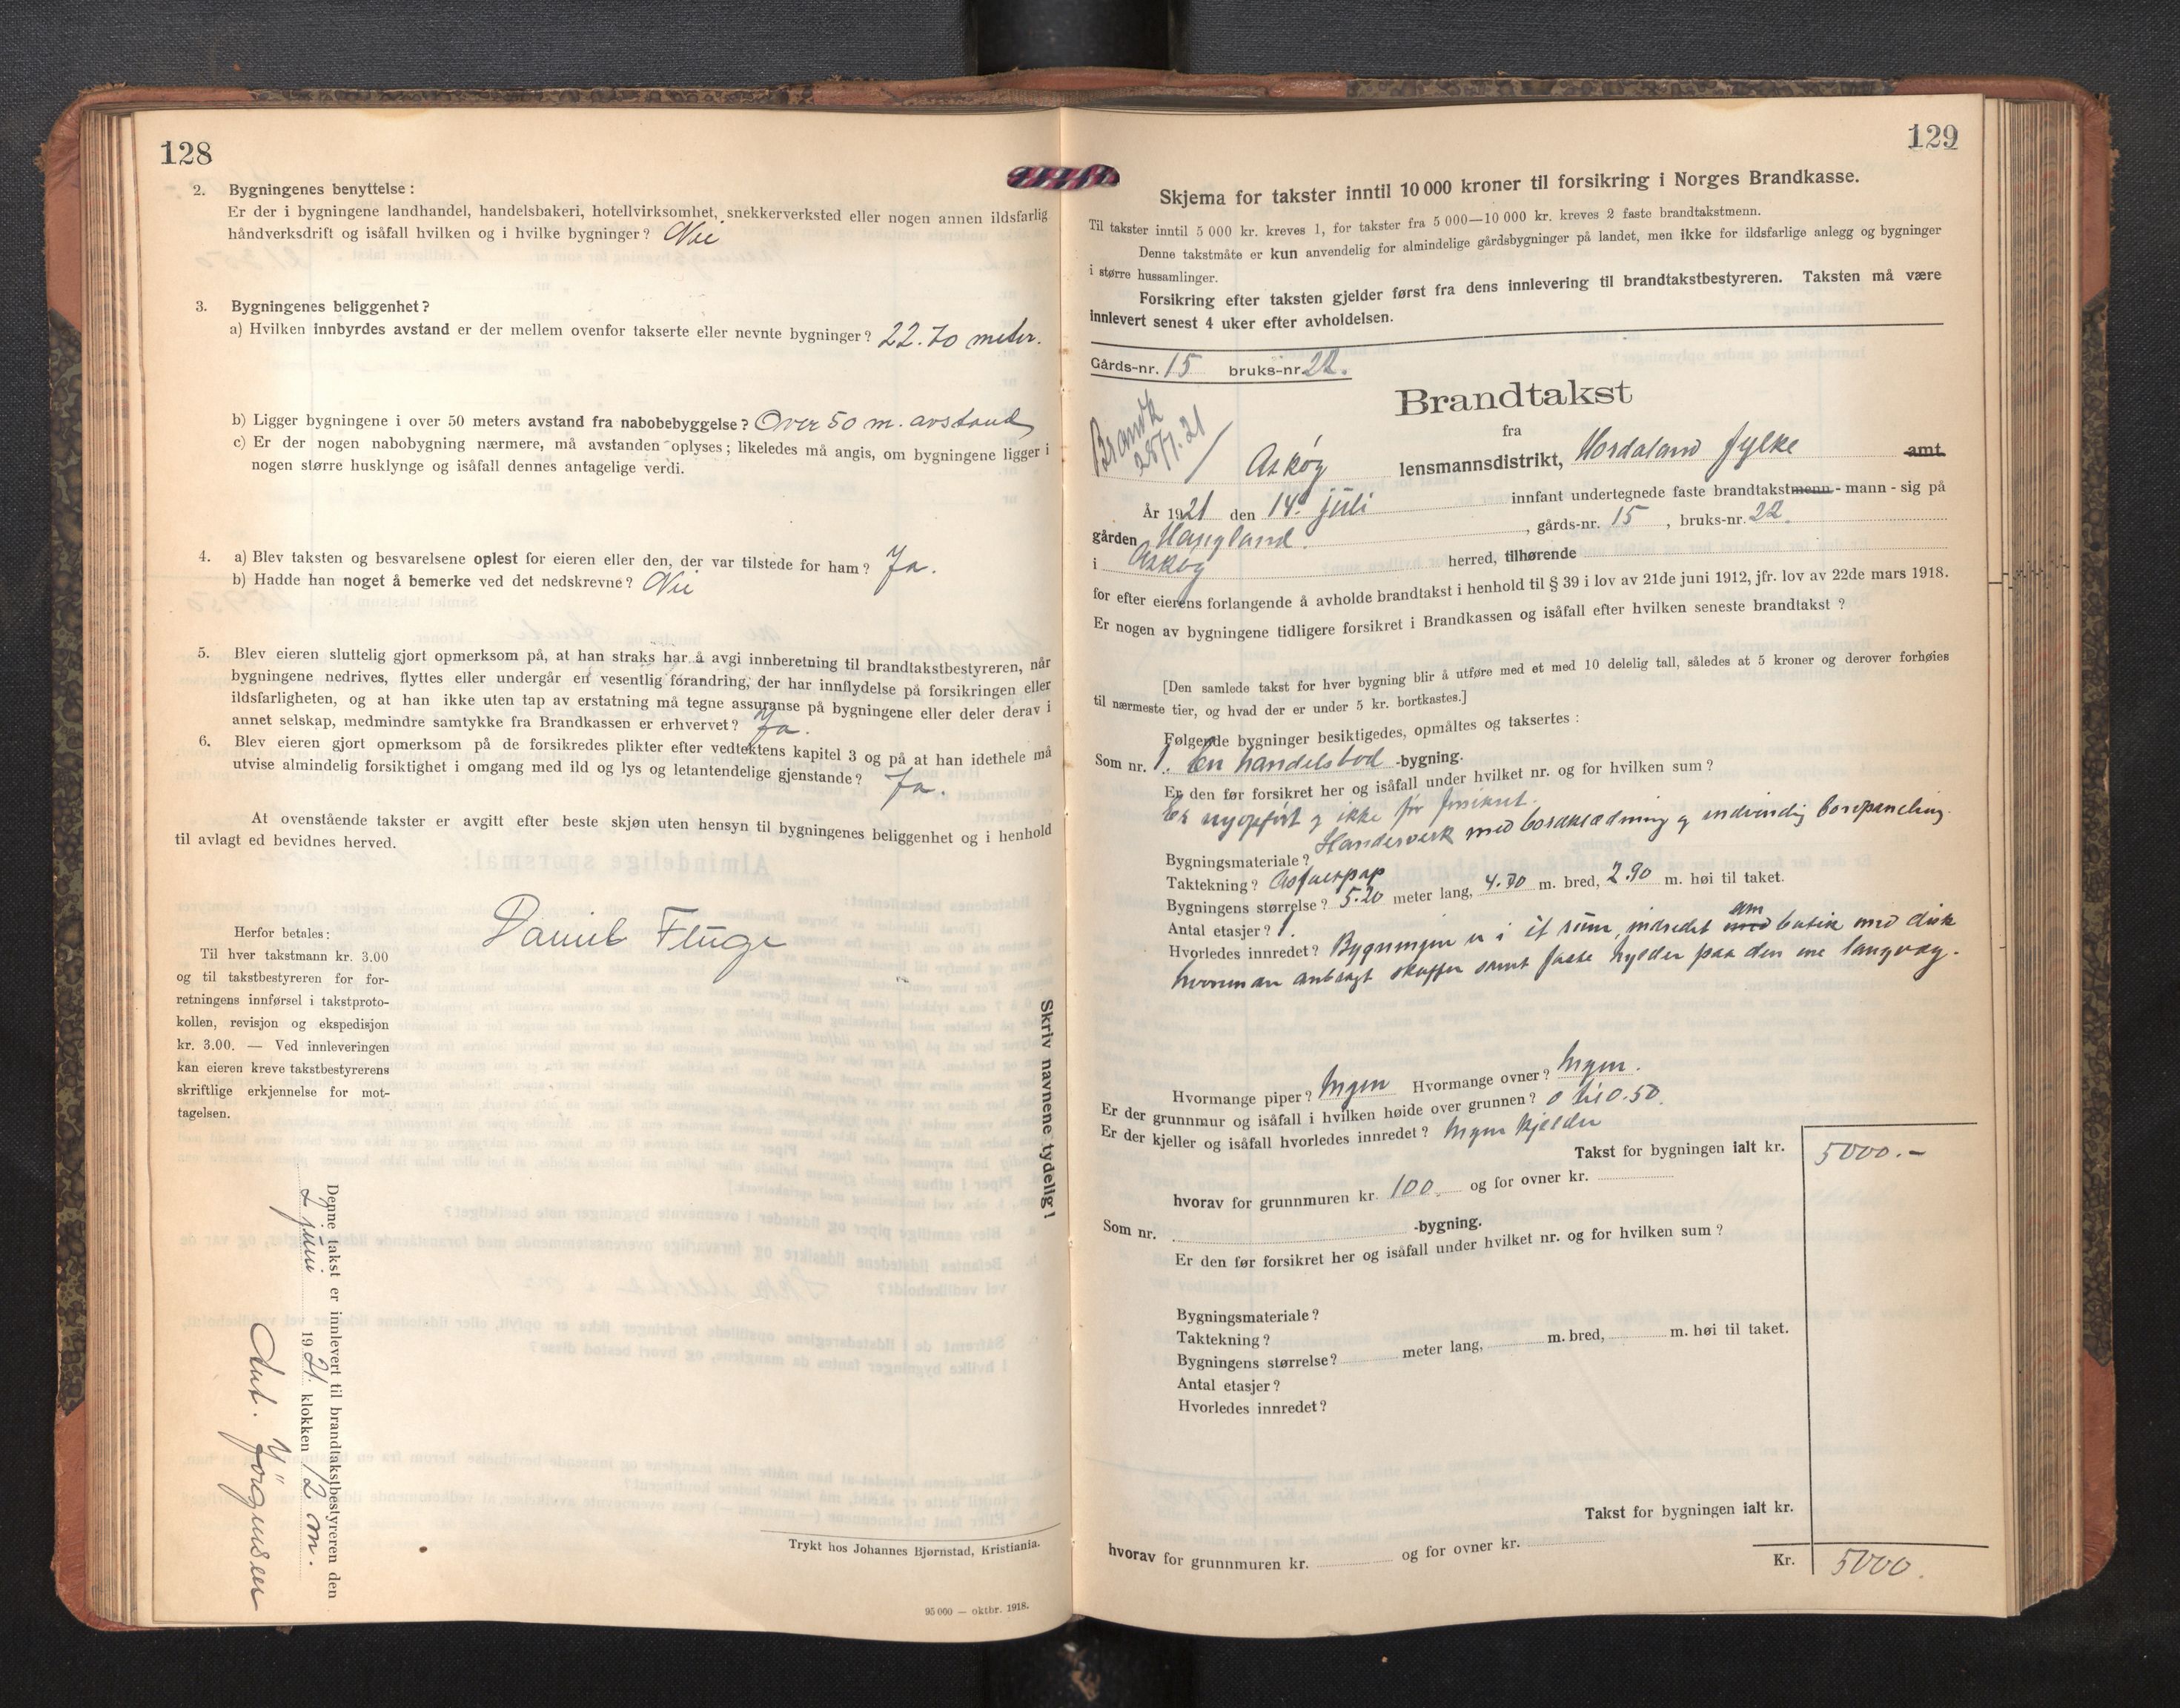 128
2. Bygningenes benyttelse:
Er der i bygningene landhandel, handelsbakeri, hotellvirksomhet, snekkerverksted eller nogen annen ildsfarlig
håndverksdrift og isåfall hvilken og i hvilke bygninger? Nei
3. Bygningenes beliggenhet?
a) Hvilken innbyrdes avstand er der mellem ovenfor takserte eller nevnte bygninger? 22.70 meter.
b) Ligger bygningene i over 50 meters avstand fra nabobebyggelse? Over 50 m. avstand
c) Er der nogen nabobygning nærmere, må avstanden oplyses; likeledes må angis, om bygningene ligger i
nogen større husklynge og isåfall dennes antagelige verdi.
4. a) Blev taksten og besvarelsene oplest for eieren eller den, der var tilstede for ham? Ja.
b) Hadde han noget å bemerke ved det nedskrevne? Nei
5. Blev eieren sluttelig gjort opmerksom på, at han straks har å avgi innberetning til brandtakstbestyreren, når
bygningene nedrives, flyttes eller undergår en vesentlig forandring, der har innflydelse på forsikringen eller
ildsfarligheten, og at han ikke uten tap av erstatning må tegne assuranse på bygningene eller deler derav i
annet selskap, medmindre samtykke fra Brandkassen er erhvervet? Ja.
6. Blev eieren gjort opmerksom på de forsikredes plikter efter vedtektens kapitel 3 og på at han idethele må
utvise almindelig forsiktighet i omgang med ild og lys og letantendelige gjenstande? Ja.
At ovenstående takster er avgitt efter beste skjøn uten hensyn til bygningenes beliggenhet og i henhold
til avlagt ed bevidnes herved.
Daniel Fluge
Herfor betales:
Til hver takstmann kr. 3.00
og til takstbestyreren for for-
retningens innførsel i takstproto-
kollen, revisjon og ekspedisjon
kr. 3.00. — Ved innleveringen
kan eieren kreve takstbestyrerens
skriftlige erkjennelse for mot-
tagelsen.
Skriv navnene tydelig!
Denne takst er innlevert til brandtakstbestyreren den
1921. klokken 12 m.
Ant. Jörgensen
Trykt hos Johannes Bjørnstad, Kristiania.
95 000 — oktbr. 1918.
129
Skjema for takster inntil 10 000 kroner til forsikring i Norges Brandkasse.
Til takster inntil 5 000 kr. kreves 1, for takster fra 5 000—10 000 kr. kreves 2 faste brandtakstmenn.
Denne takstmåte er kun anvendelig for almindelige gårdsbygninger på landet, men ikke for ildsfarlige anlegg og bygninger
i større hussamlinger.
Forsikring efter taksten gjelder først fra dens innlevering til brandtakstbestyreren. Taksten må være
innlevert senest 4 uker efter avholdelsen.
Gårds-nr. 15 bruks-nr. 22.
Brandtakst
fra
Brandk
28/7.21
Askøy lensmannsdistrikt, Hordaland fylke amt
År 1921 den 14d juli innfant undertegnede faste brandtakstmenn - mann - sig på
gården Haugland, gårds-nr. 15, bruks-nr. 22.
i Askøy herred, tilhørende
for efter eierens forlangende å avholde brandtakst i henhold til § 39 i lov av 21de juni 1912, jfr. lov av 22de mars 1918.
Er nogen av bygningene tidligere forsikret i Brandkassen og isåfall efter hvilken seneste brandtakst?
[Den samlede takst for hver bygning blir å utføre med et med 10 delelig tall, således at 5 kroner og derover forhøies
til nærmeste tier, og hvad der er under 5 kr. bortkastes.]
Følgende bygninger besiktigedes, opmåltes og taksertes:
Som nr. 1. En handelsbod -bygning.
Er den før forsikret her og isåfall under hvilket nr. og for hvilken sum?
Er nyopført og ikke før forsikret.
Bygningsmateriale? med bordklædning og indvendig bordpaneling.
Taktekning? Asfaltpap
Bygningens størrelse? 5.20 meter lang, 4.70 m. bred, 2.90 m. høi til taket.
Antal etasjer? 1.
Hvorledes innredet? Bygningen er i it rum, indredet med am butik med disk
hvorunder anbragt skuffer samt faste hylder paa den ene langvæg.
Hvormange piper? Ingen Hvormange ovner? Ingen.
Er der grunnmur og isåfall i hvilken høide over grunnen? 0 til 0.50.
Er der kjeller og isåfall hvorledes innredet? Ingen kjelder
Takst for bygningen ialt kr. 5000.-
hvorav for grunnmuren kr. 100. og for ovner kr.
Som nr. -bygning.
Er den før forsikret her og isåfall under hvilket nr. og for hvilken sum?
Bygningsmateriale?
Taktekning?
Bygningens størrelse? meter lang, m. bred, m. høi til taket.
Antal etasjer?
Hvorledes innredet?
Takst for bygningen ialt kr.
hvorav for grunnmuren kr. og for ovner kr.
Kr. 5000.